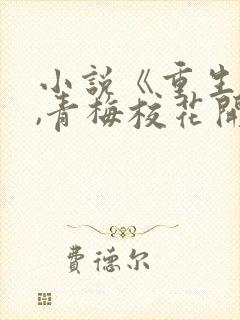 小说《重生
,青梅校花開
費德尔